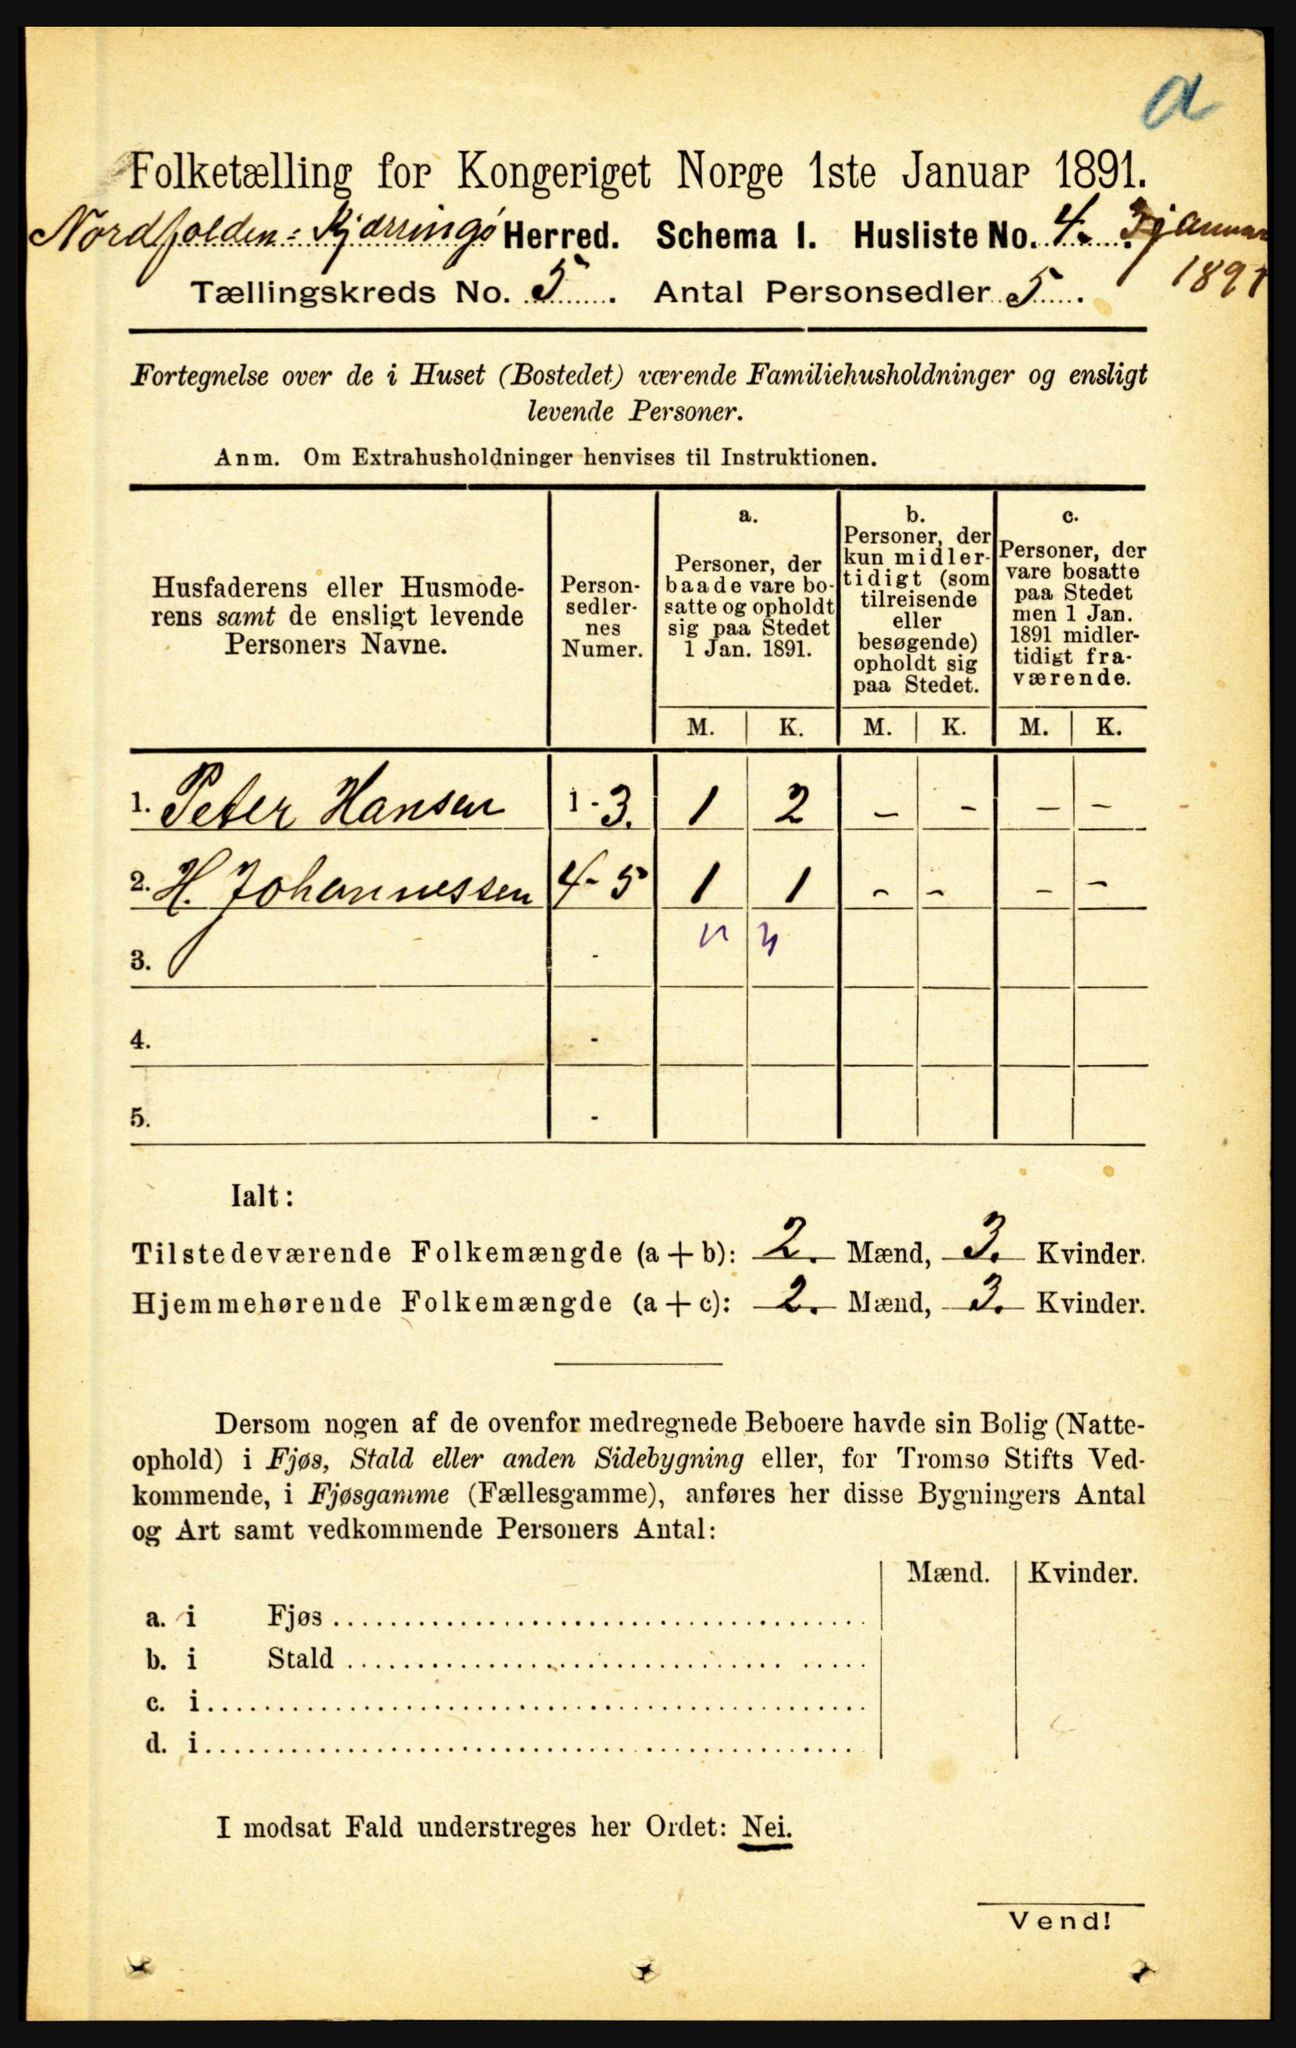 a
Folketælling for Kongeriget Norge 1ste Januar 1891.
Nordfolden-Kjærringø Herred. Schema I. Husliste No. 4. 3 januar
1891
Tællingskreds No. 5. Antal Personsedler 5.
Fortegnelse over de i Huset (Bostedet) værende Familiehusholdninger og ensligt
levende Personer.
Anm. Om Extrahusholdninger henvises til Instruktionen.
Husfaderens eller Husmode-
rens samt de ensligt levende
Personers Navne.
Person-
sedler-
nes
Numer.
a.
Personer, der
baade vare bo-
satte og opholdt
sig paa Stedet
1 Jan. 1891.
b.
Personer, der
kun midler-
tidigt (som
tilreisende
eller
besøgende)
opholdt sig
paa Stedet.
c.
Personer, der
vare bosatte
paa Stedet
men 1 Jan.
1891 midler-
tidigt fra-
værende.
M. K. M. K. M. K.
1. Peter Hansen 1-3. 1 2 - - - -
2. H. Johannessen 4-5 1 1 - - - -
3. -
4. -
5. -
Ialt:
Tilstedeværende Folkemængde (a + b): 2. Mænd, 3. Kvinder.
Hjemmehørende Folkemængde (a + c): 2. Mænd, 3. Kvinder.
Dersom nogen af de ovenfor medregnede Beboere havde sin Bolig (Natte-
ophold) i Fjøs, Stald eller anden Sidebygning eller, for Tromsø Stifts Ved-
kommende, i Fjøsgamme (Fællesgamme), anføres her disse Bygningers Antal
og Art samt vedkommende Personers Antal:
Mænd. Kvinder.
a. i Fjøs
b. i Stald
c. i
d. i
I modsat Fald understreges her Ordet: Nei.
Vend!